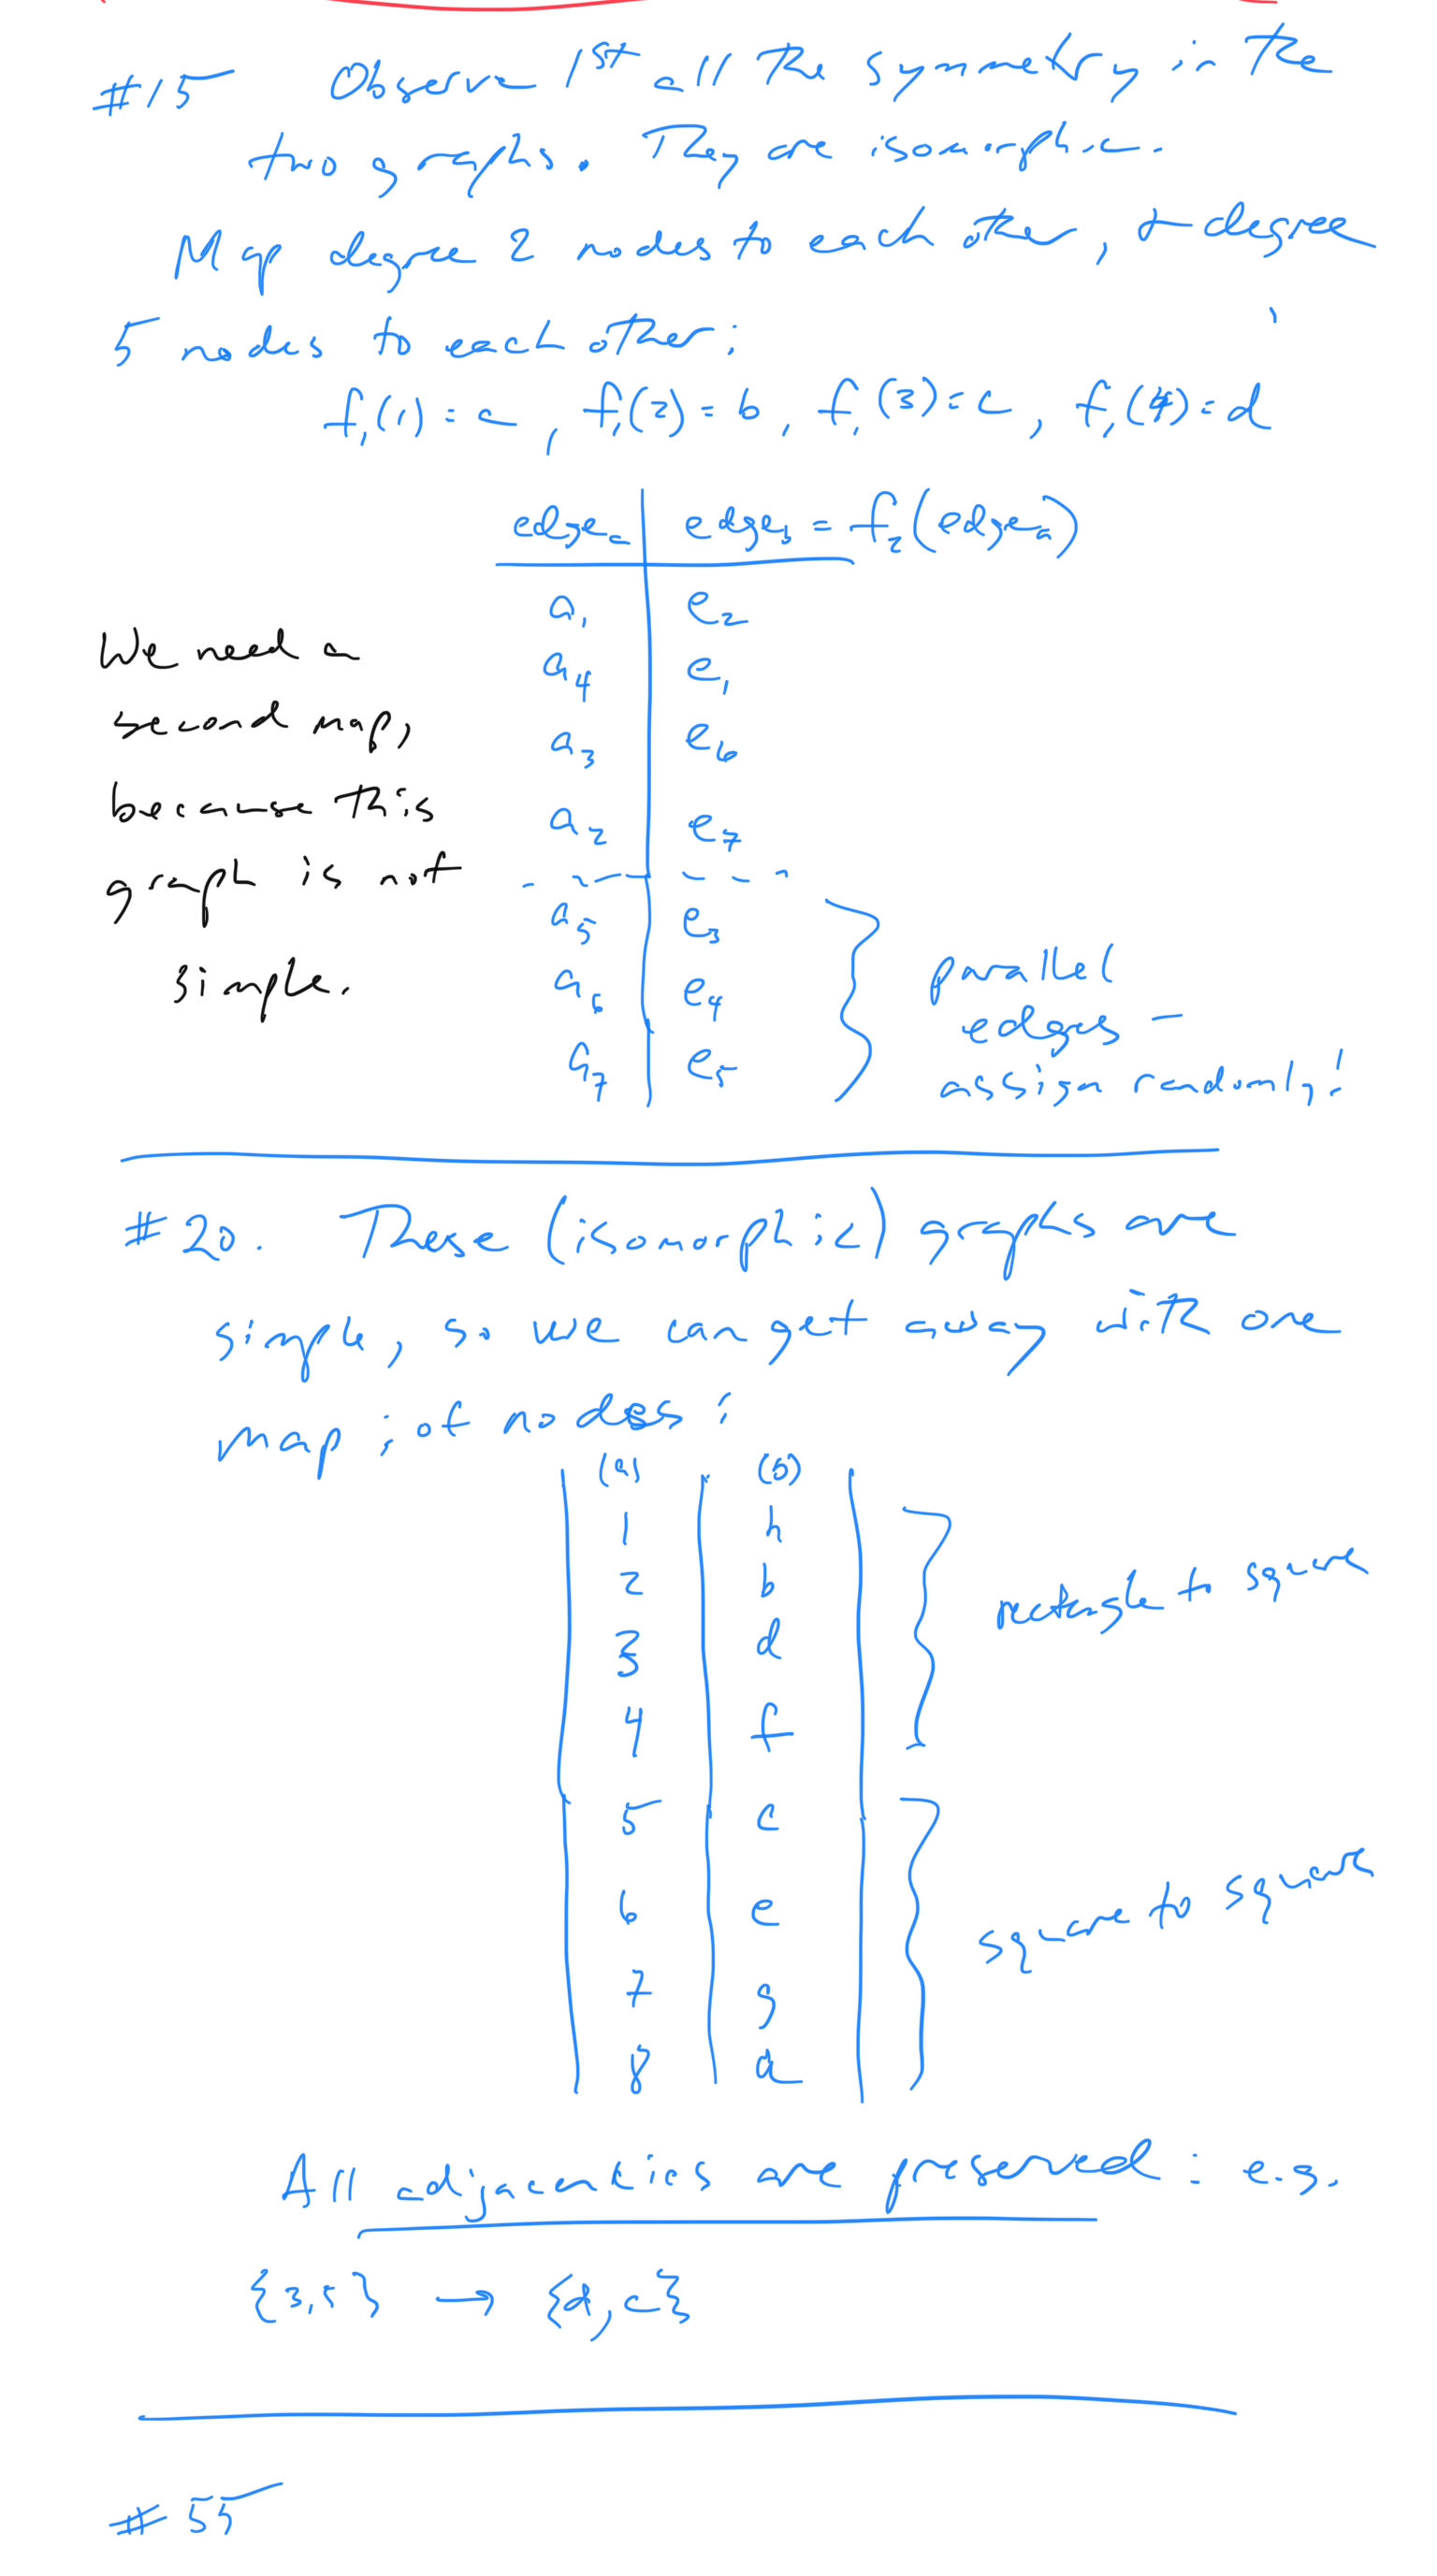 #15 Observe 1st all the symmetry in the
two graphs. They are isomorphic.
Map degree 2 nodes to each other, + degree
5 nodes to each other:
f₁(1) = a, f₁(2) = b, f₁(3) = c, f₁(4) = d
edgeₐ | edge_b = f₂(edgeₐ)
a₁ | e₂
a₄ | e₁
a₃ | e₆
a₂ | e₇
a₅ | e₃
a₆ | e₄
a₇ | e₅
We need a
second map,
because this
graph is not
simple.
parallel
edges -
assign randomly!
#20. These (isomorphic) graphs are
simple, so we can get away with one
map; of nodes:
(a) | (b)
1 | h
2 | b
3 | d
4 | f
5 | c
6 | e
7 | g
8 | a
rectangle to square
square to square
All adjacencies are preserved: e.g.
{3,5} → {d,c}
#55